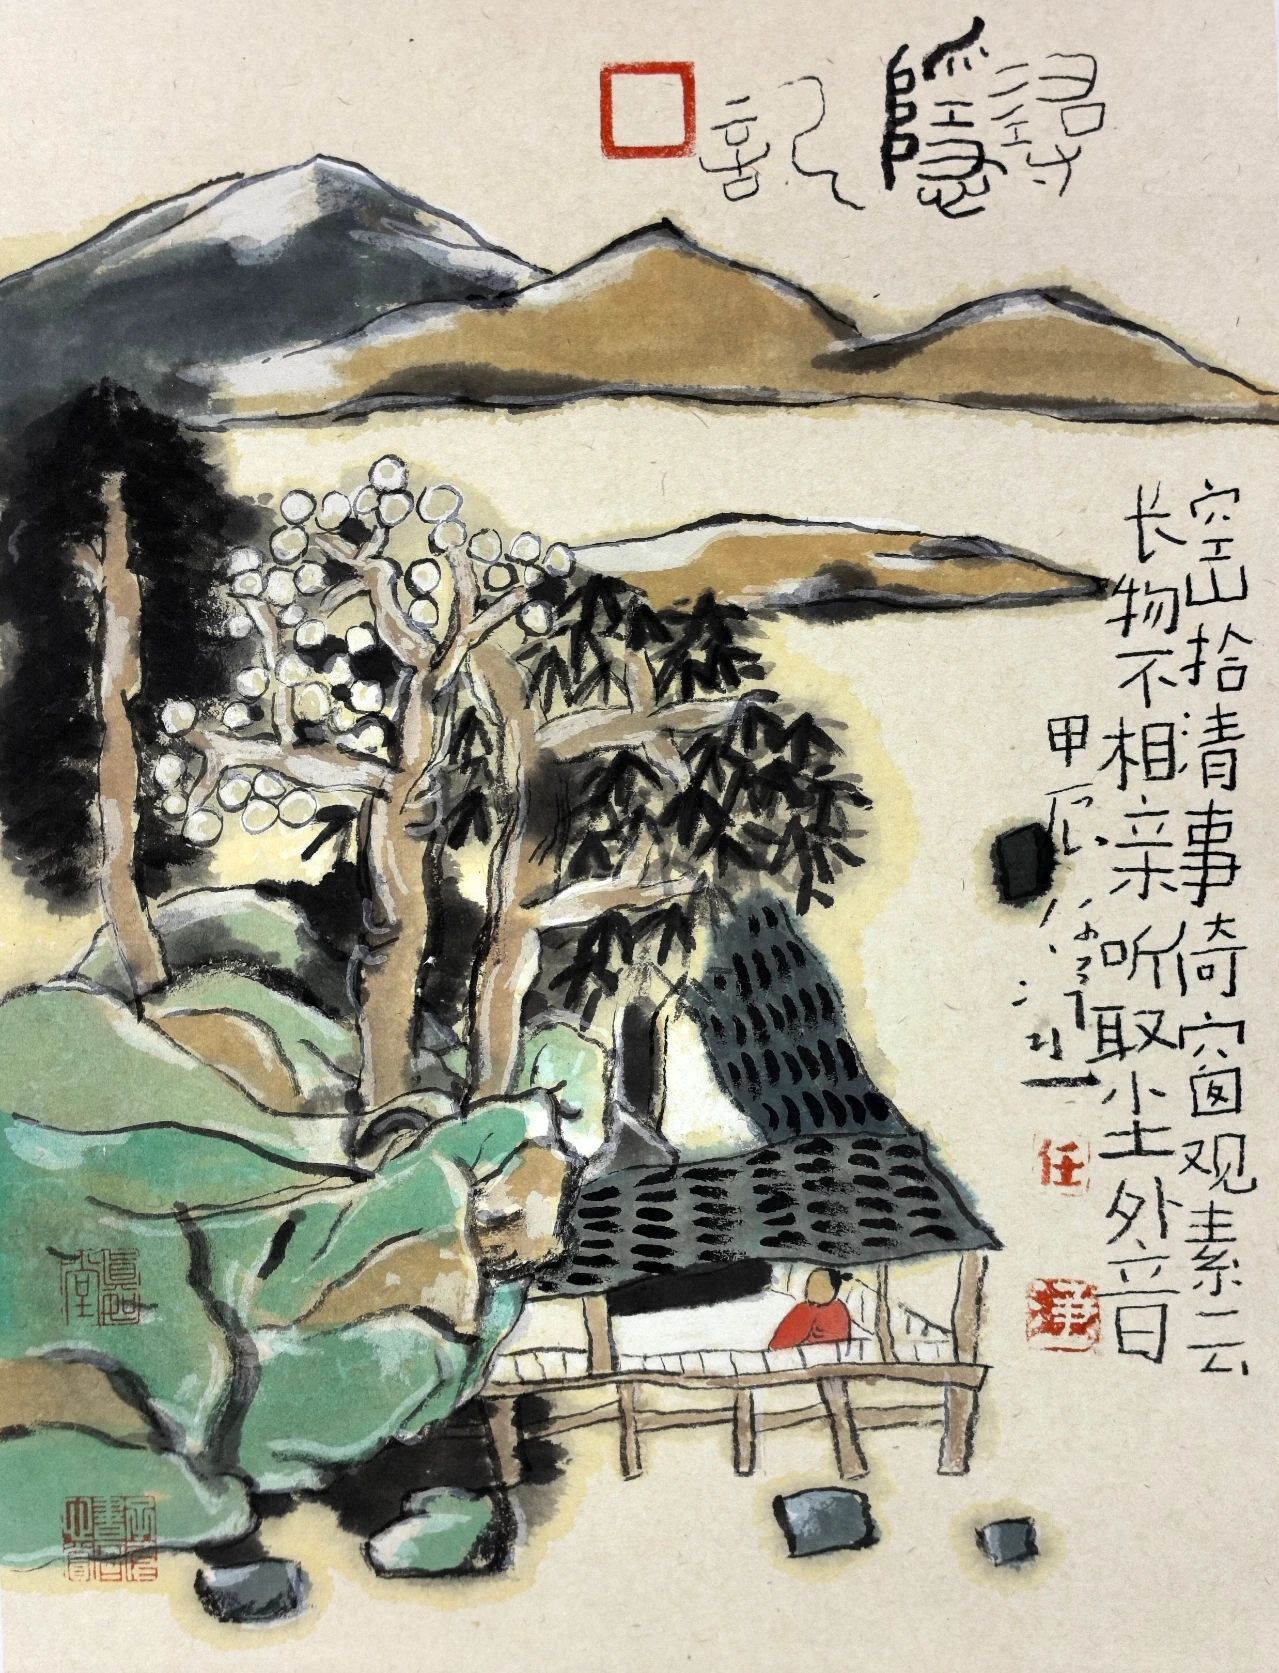 寻隐记
空山拾清事倚窗观素云
长物不相亲听取尘外音
甲辰
任